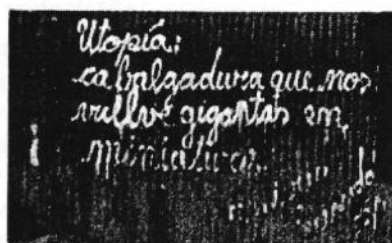 Utopía:
cabalgadura que nos
vuelve gigantes en
miniatura